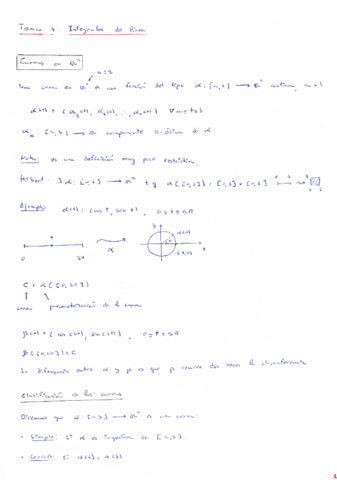 Tema 4: Integrales de línea
Curvas en ℝⁿ
n ≥ 2
Una curva en ℝⁿ es una función del tipo α: [a,b] → ℝⁿ continua, a < b
α(t) = (α₁(t), α₂(t), ..., αₙ(t)) ∀ a ≤ t ≤ b
[a,b] → es componente de α
Nota: es una definición muy poco restrictiva.
Hilbert: ∃ α: [a,b] → ℝⁿ t.q. α([a,b]) = [a,b] × [a,b]
Ejemplo: α(t) = (cos t, sen t), 0 ≤ t ≤ 2π
α(t)
0 2π
α
C = α([a,b])
curva parametrización de la curva
β(t) = (cos(2t), sen(2t)), 0 ≤ t ≤ 2π
β([a,b]) = C
La diferencia entre α y β es que β recorre dos veces la circunferencia
Clasificación de las curvas
Diremos que α: [a,b] → ℝⁿ es una curva:
- Simple: si α es inyectiva en [a,b)
- Cerrada: si α(a) = α(b)